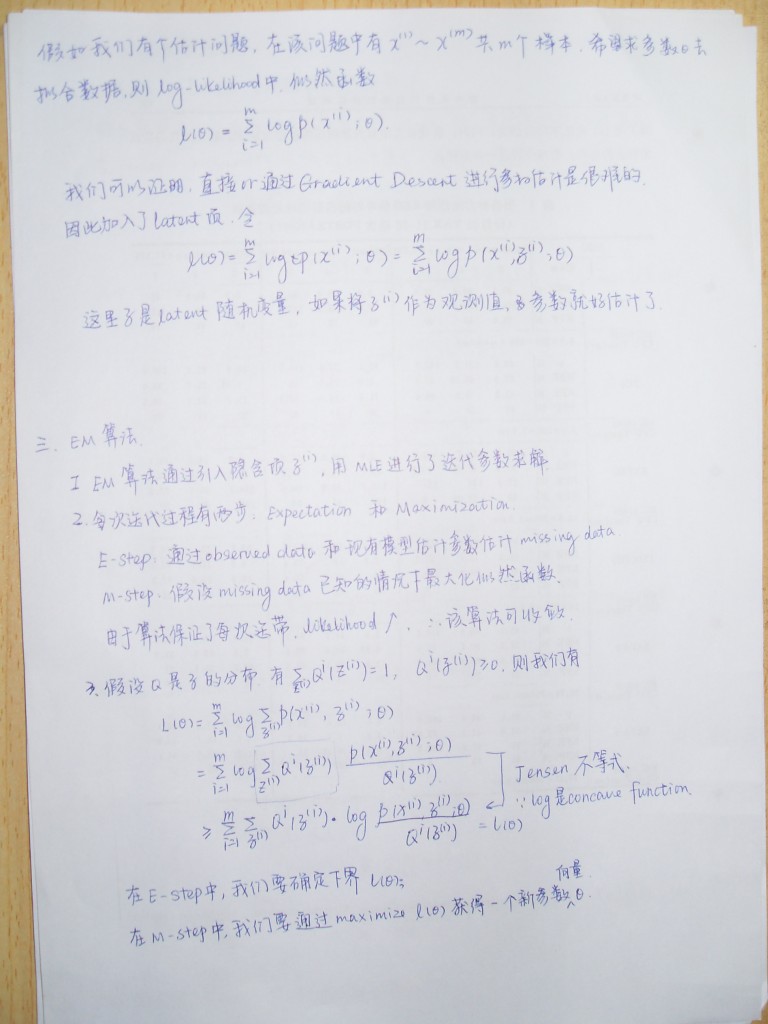 假如我们有个估计问题，在该问题中有 x⁽¹⁾ ~ x⁽ᵐ⁾ 共 m 个样本，希望求参数 θ 去
拟合数据，则 log-likelihood 中，似然函数
l(θ) = Σ_{i=1}^{m} log p(x⁽ⁱ⁾; θ).
我们可以证明，直接 or 通过 Gradient Descent 进行参数估计是很难的.
因此加入了 latent 项，令
l(θ) = Σ_{i=1}^{m} log p(x⁽ⁱ⁾; θ) = Σ_{i=1}^{m} log p(x⁽ⁱ⁾, z⁽ⁱ⁾; θ)
这里 z 是 latent 随机变量，如果将 z⁽ⁱ⁾ 作为观测值，参数就好估计了.
三. EM 算法.
1 EM 算法通过引入隐含项 z⁽ⁱ⁾，用 MLE 进行了迭代参数求解
2. 每次迭代过程有两步: Expectation 和 Maximization.
E-step: 通过 observed data 和现有模型估计参数估计 missing data
M-step: 假设 missing data 已知的情况下最大化似然函数.
由于算法保证了每次迭带, likelihood ↗, ∴该算法可收敛.
3. 假设 Q 是 z 的分布. 有 Σ_{z⁽ⁱ⁾} Qⁱ(z⁽ⁱ⁾) = 1, Qⁱ(z⁽ⁱ⁾) ≥ 0. 则我们有
L(θ) = Σ_{i=1}^{m} log Σ_{z⁽ⁱ⁾} p(x⁽ⁱ⁾, z⁽ⁱ⁾; θ)
= Σ_{i=1}^{m} log Σ_{z⁽ⁱ⁾} Qⁱ(z⁽ⁱ⁾) p(x⁽ⁱ⁾, z⁽ⁱ⁾; θ) / Qⁱ(z⁽ⁱ⁾)
Jensen 不等式.
∵ log 是 concave function.
≥ Σ_{i=1}^{m} Σ_{z⁽ⁱ⁾} Qⁱ(z⁽ⁱ⁾) · log p(x⁽ⁱ⁾, z⁽ⁱ⁾; θ) / Qⁱ(z⁽ⁱ⁾) = l(θ)
在 E-step 中, 我们要确定下界 l(θ);
在 M-step 中, 我们要通过 maximize l(θ) 获得一个新参数向量 θ.